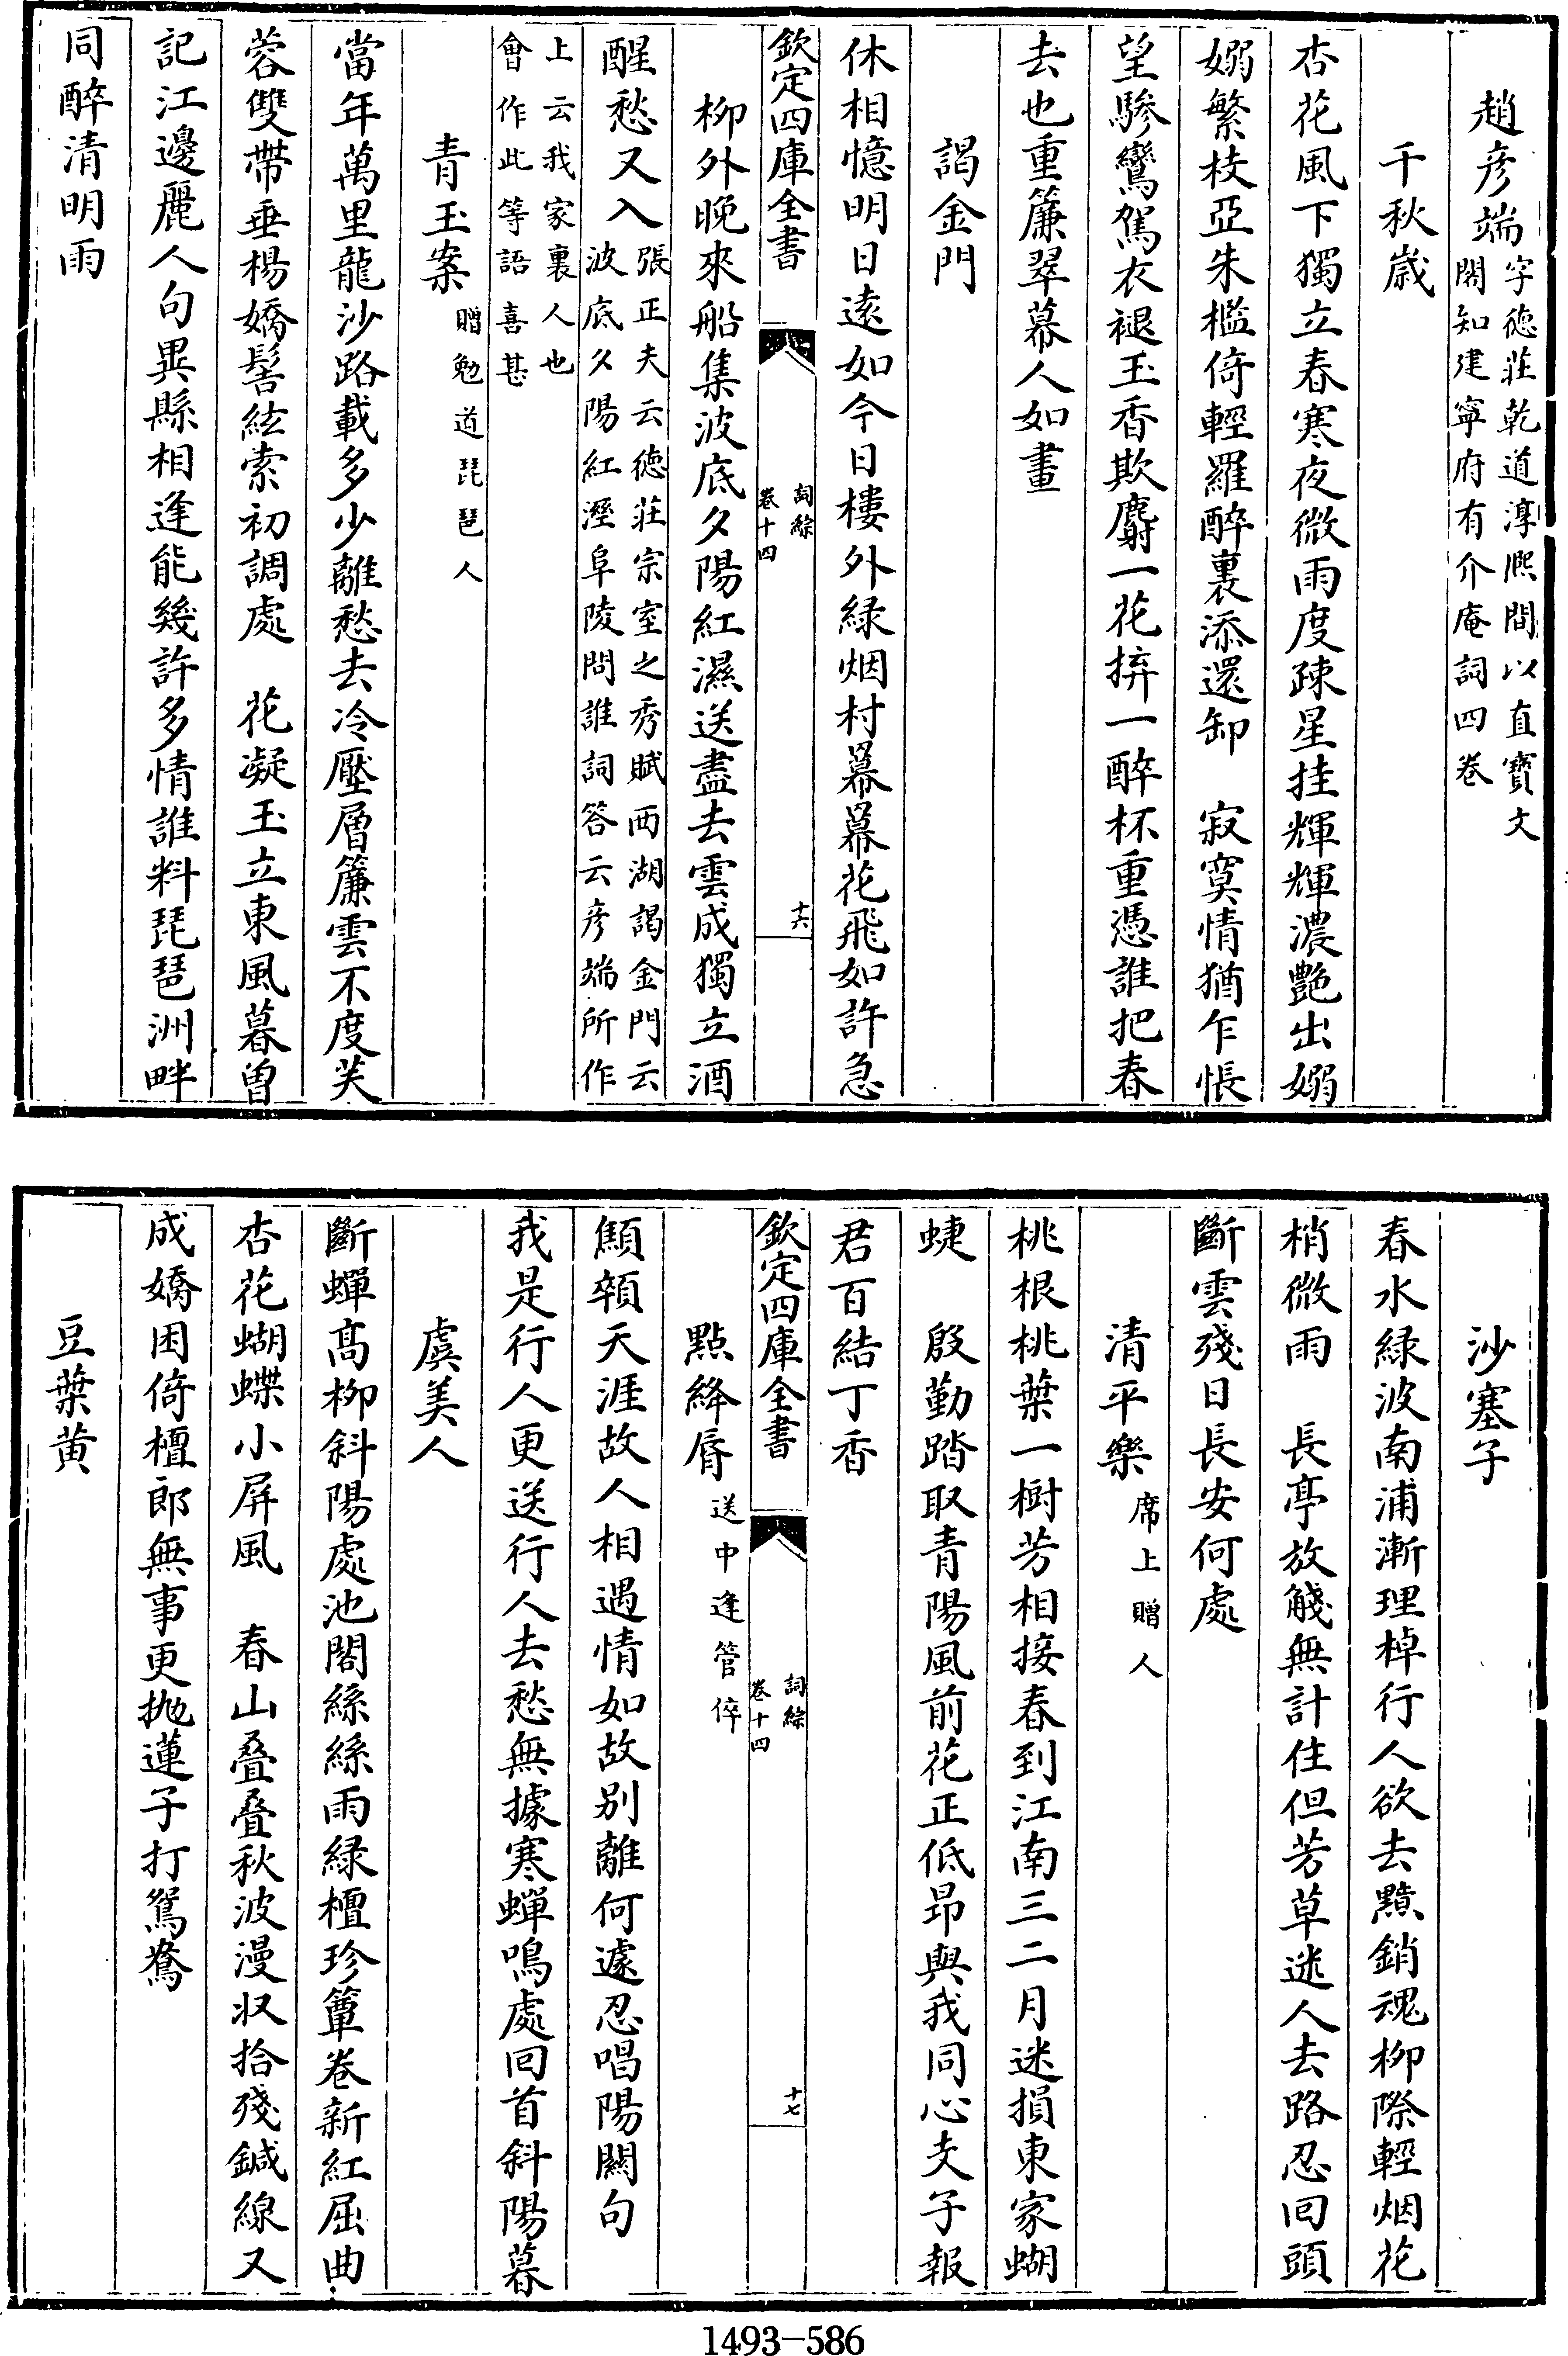 趙彦端字徳莊乾道淳熈間以直寶文
閣知建寧府有介庵詞四卷
千秋歳
杏花風下獨立春寒夜微雨度疎星挂輝輝濃艷出嫋
嫋繁枝亞朱檻倚輕羅醉裏添還卸　寂寞情猶乍悵
望驂鸞駕衣褪玉香欺麝一花拚一醉杯重憑誰把春
去也重簾翠幕人如畫
謁金門
休相憶明日逺如今日樓外緑烟村羃羃花飛如許急
欽定四庫全書
詞綜
卷十四
十六
柳外晚來船集波底夕陽紅濕送盡去雲成獨立酒
醒愁又入張正夫云徳莊宗室之秀賦西湖謁金門云
波底夕陽紅溼阜陵問誰詞答云彦端所作
上云我家裏人也
會作此等語喜甚
青玉案贈勉道琵琶人
當年萬里龍沙路載多少離愁去冷壓層簾雲不度芙
蓉雙帶垂楊嬌髻絃索初調處　花凝玉立東風暮曽
記江邊麗人句異縣相逢能幾許多情誰料琵琶洲畔
同醉清明雨
沙塞子
春水緑波南浦漸理棹行人欲去黯銷魂柳際輕烟花
梢微雨　長亭放醆無計住但芳草迷人去路忍囘頭
斷雲殘日長安何處
清平樂席上贈人
桃根桃葉一樹芳相接春到江南三二月迷損東家蝴
蜨　殷勤踏取青陽風前花正低昻與我同心支子報
君百結丁香
欽定四庫全書
詞綜
卷十四
十七
點絳脣送中逢管倅
顦顇天涯故人相遇情如故别離何遽忍唱陽闗句
我是行人更送行人去愁無據寒蟬鳴處囘首斜陽暮
虞美人
斷蟬髙柳斜陽處池閣絲絲雨緑檀珍簟卷新紅屈曲
杏花蝴蝶小屏風　春山叠叠秋波漫収拾殘鍼線又
成嬌困倚檀郎無事更抛蓮子打鴛鴦
豆葉黄
1493-586